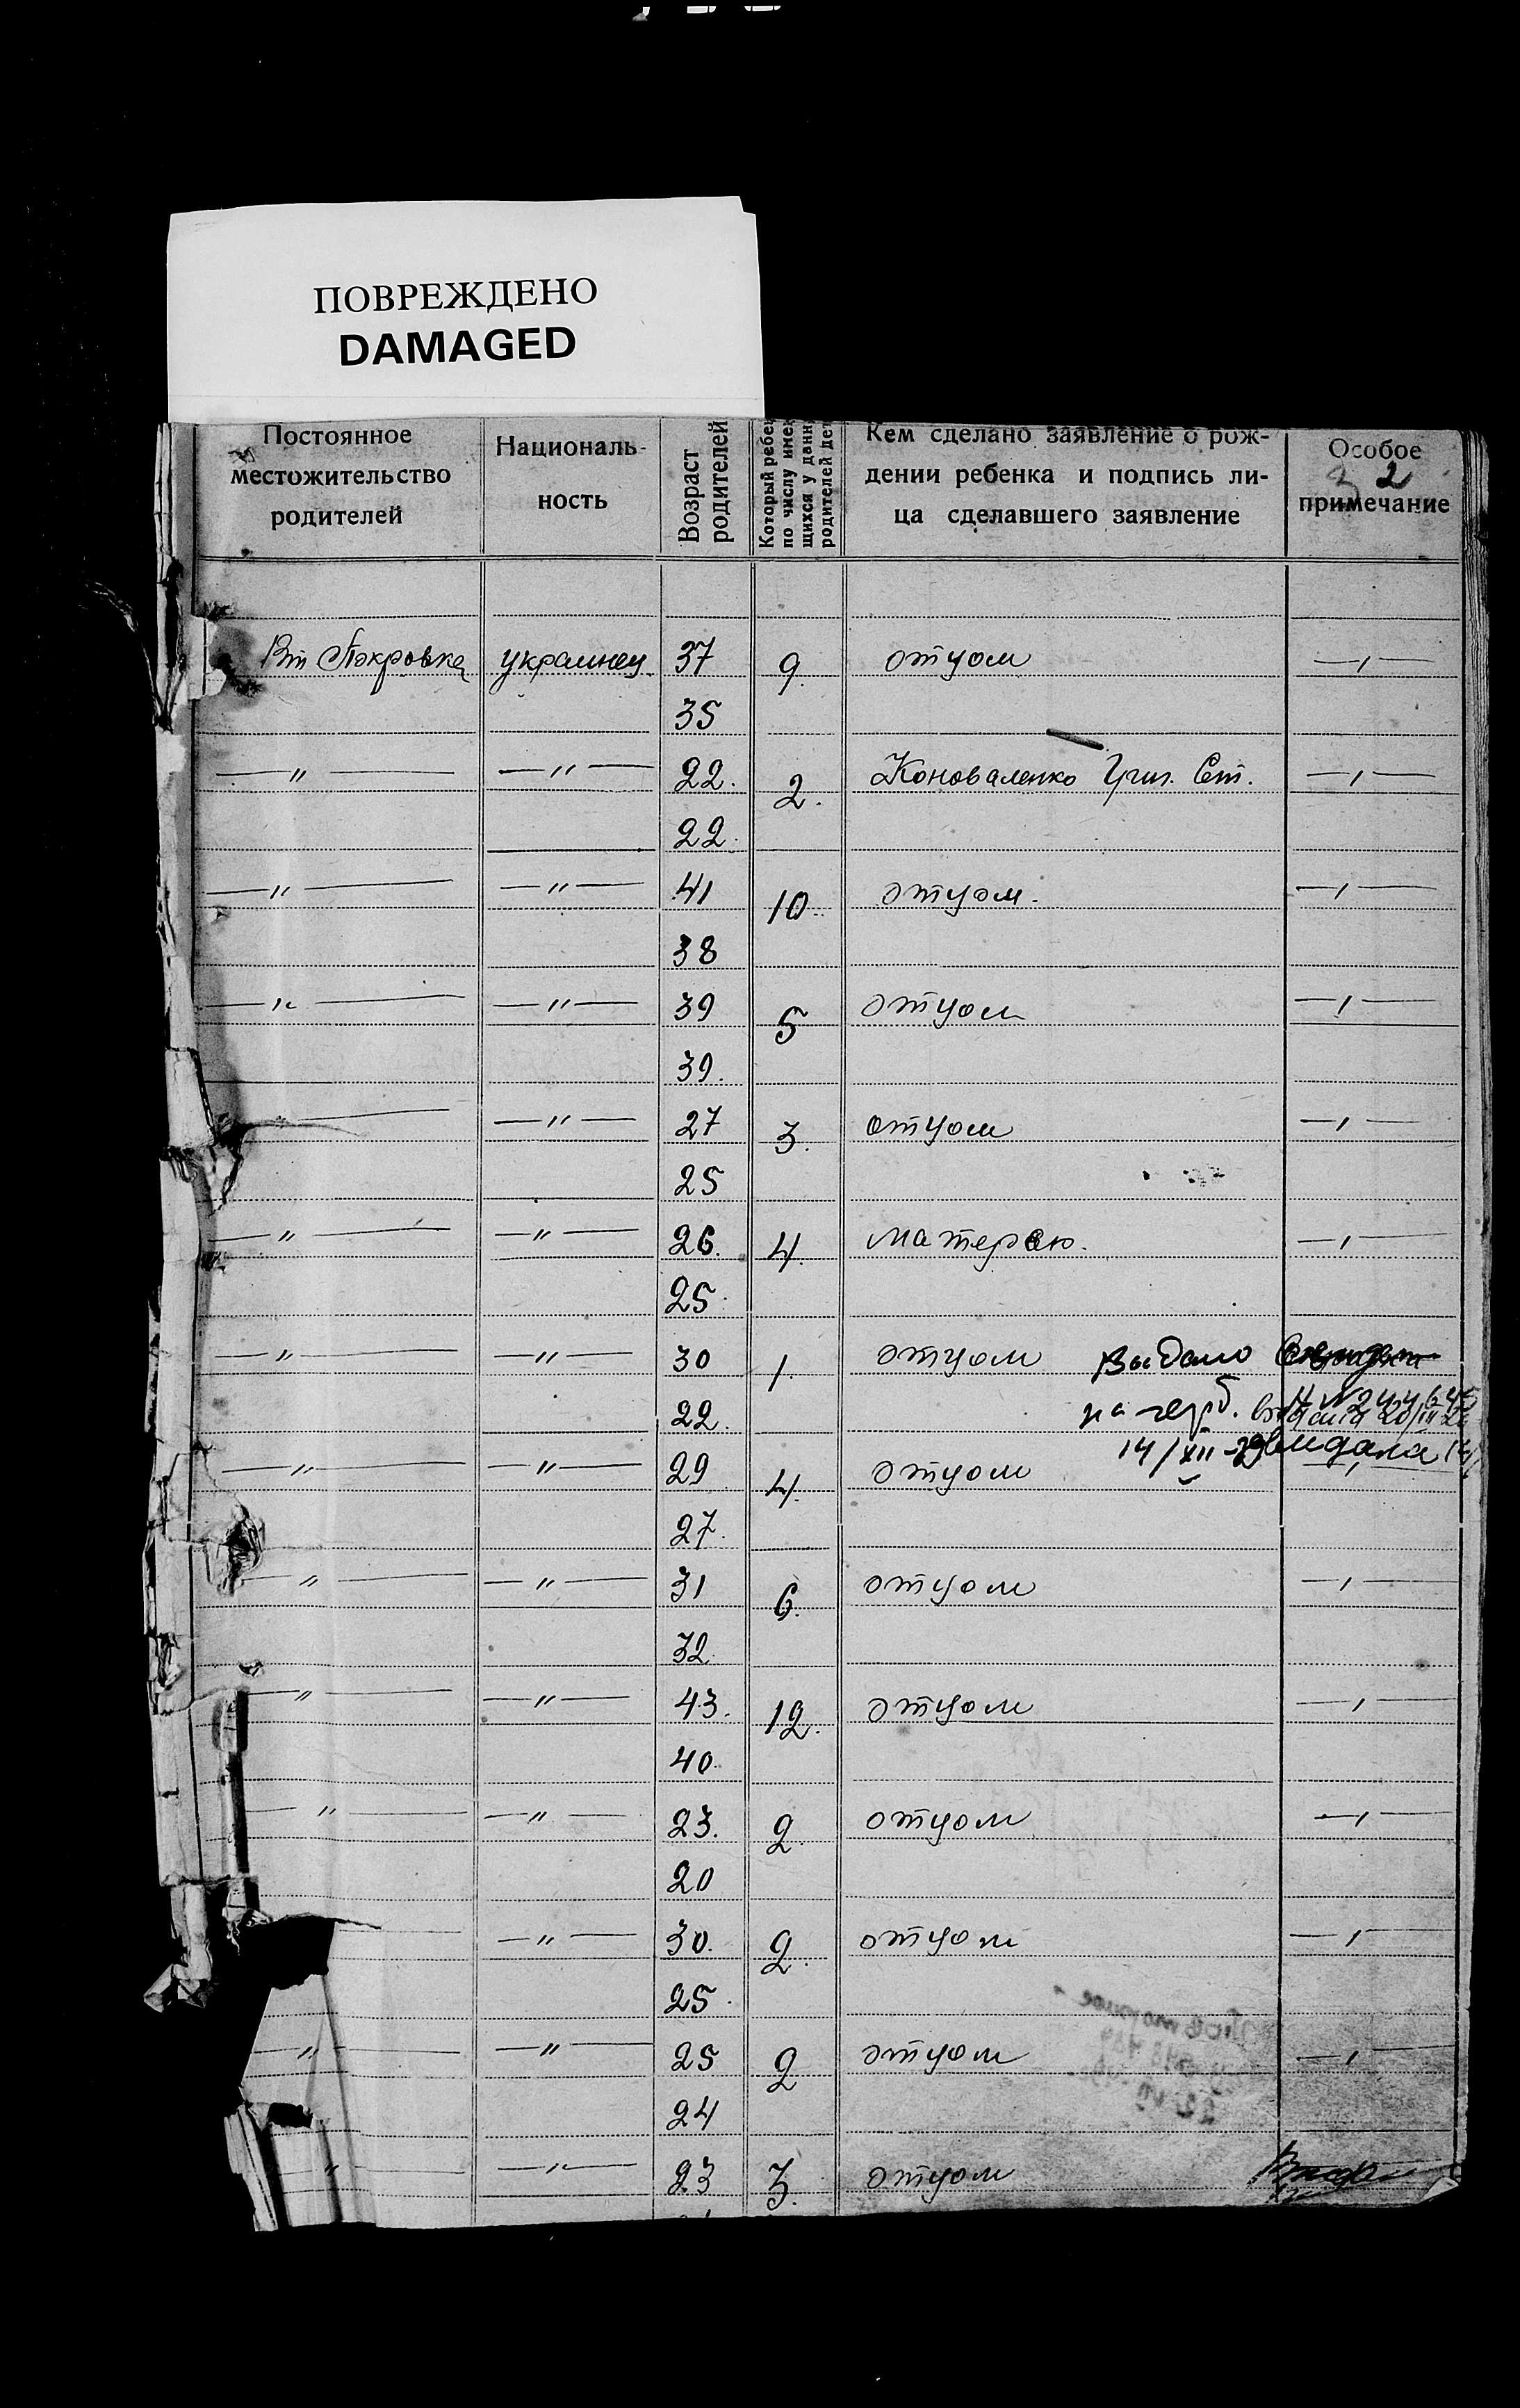 ПОВРЕЖДЕНО
DAMAGED
Постоянное
местожительство
родителей
Националь-
ность
Возраст
родителей
Который ребе
по числу имею
щихся у данн
родителей дет
Кем сделано заявление о рож-
дении ребенка и подпись ли-
ца сделавшего заявление
Особое
2
примечание
Вт Покровка украинец 37 9. отцом —ı—
35
—"— —"— 22. 2. Коноваленко Григ. Ст. —ı—
22.
—"— —"— 41 10. отцом. —ı—
38
—"— —"— 39 5 отцом —ı—
39.
—"— 27 3. отцом —ı—
25
—"— —"— 26. 4. матерью. —ı—
25
—"— —"— 30 1. отцом Выдано
22. на
14/XII
—"— —"— 29 4. отцом
27.
—"— —"— 31 6. отцом —ı—
32
—"— —"— 43. 12. отцом ı—
40.
—"— —"— 23. 2. отцом —ı—
20
—"— 30. 2. отцом —ı—
25.
—"— —"— 25 2 отцом —ı—
24
—"— —"— 23 3. отцом